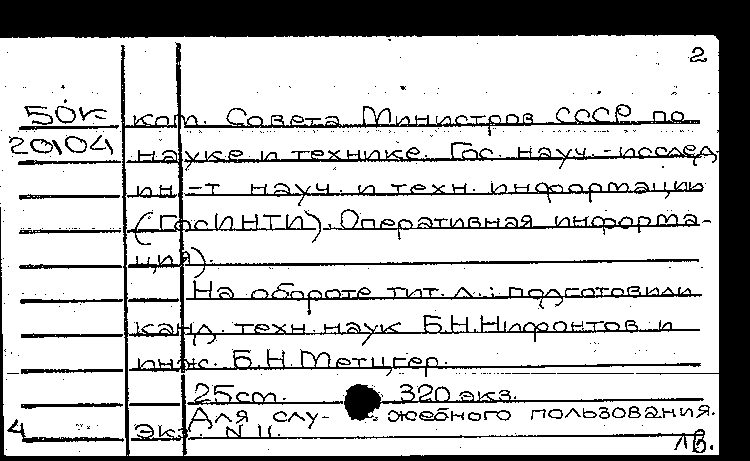 2
50к ком. Совета Министров СССР по
20104 науке и технике. Гос. науч.-исслед.
ин-т науч. и техн. информации
(ГосИНТИ). Оперативная информа-
ция).
На обороте тит. л.: подготовили
канд. техн. наук Б.Н.Нифонтов и
инж. Б.Н.Метцгер.
25 ст. 320 экз.
Для слу- жебного пользования.
4 Экз. N 11.
1В.